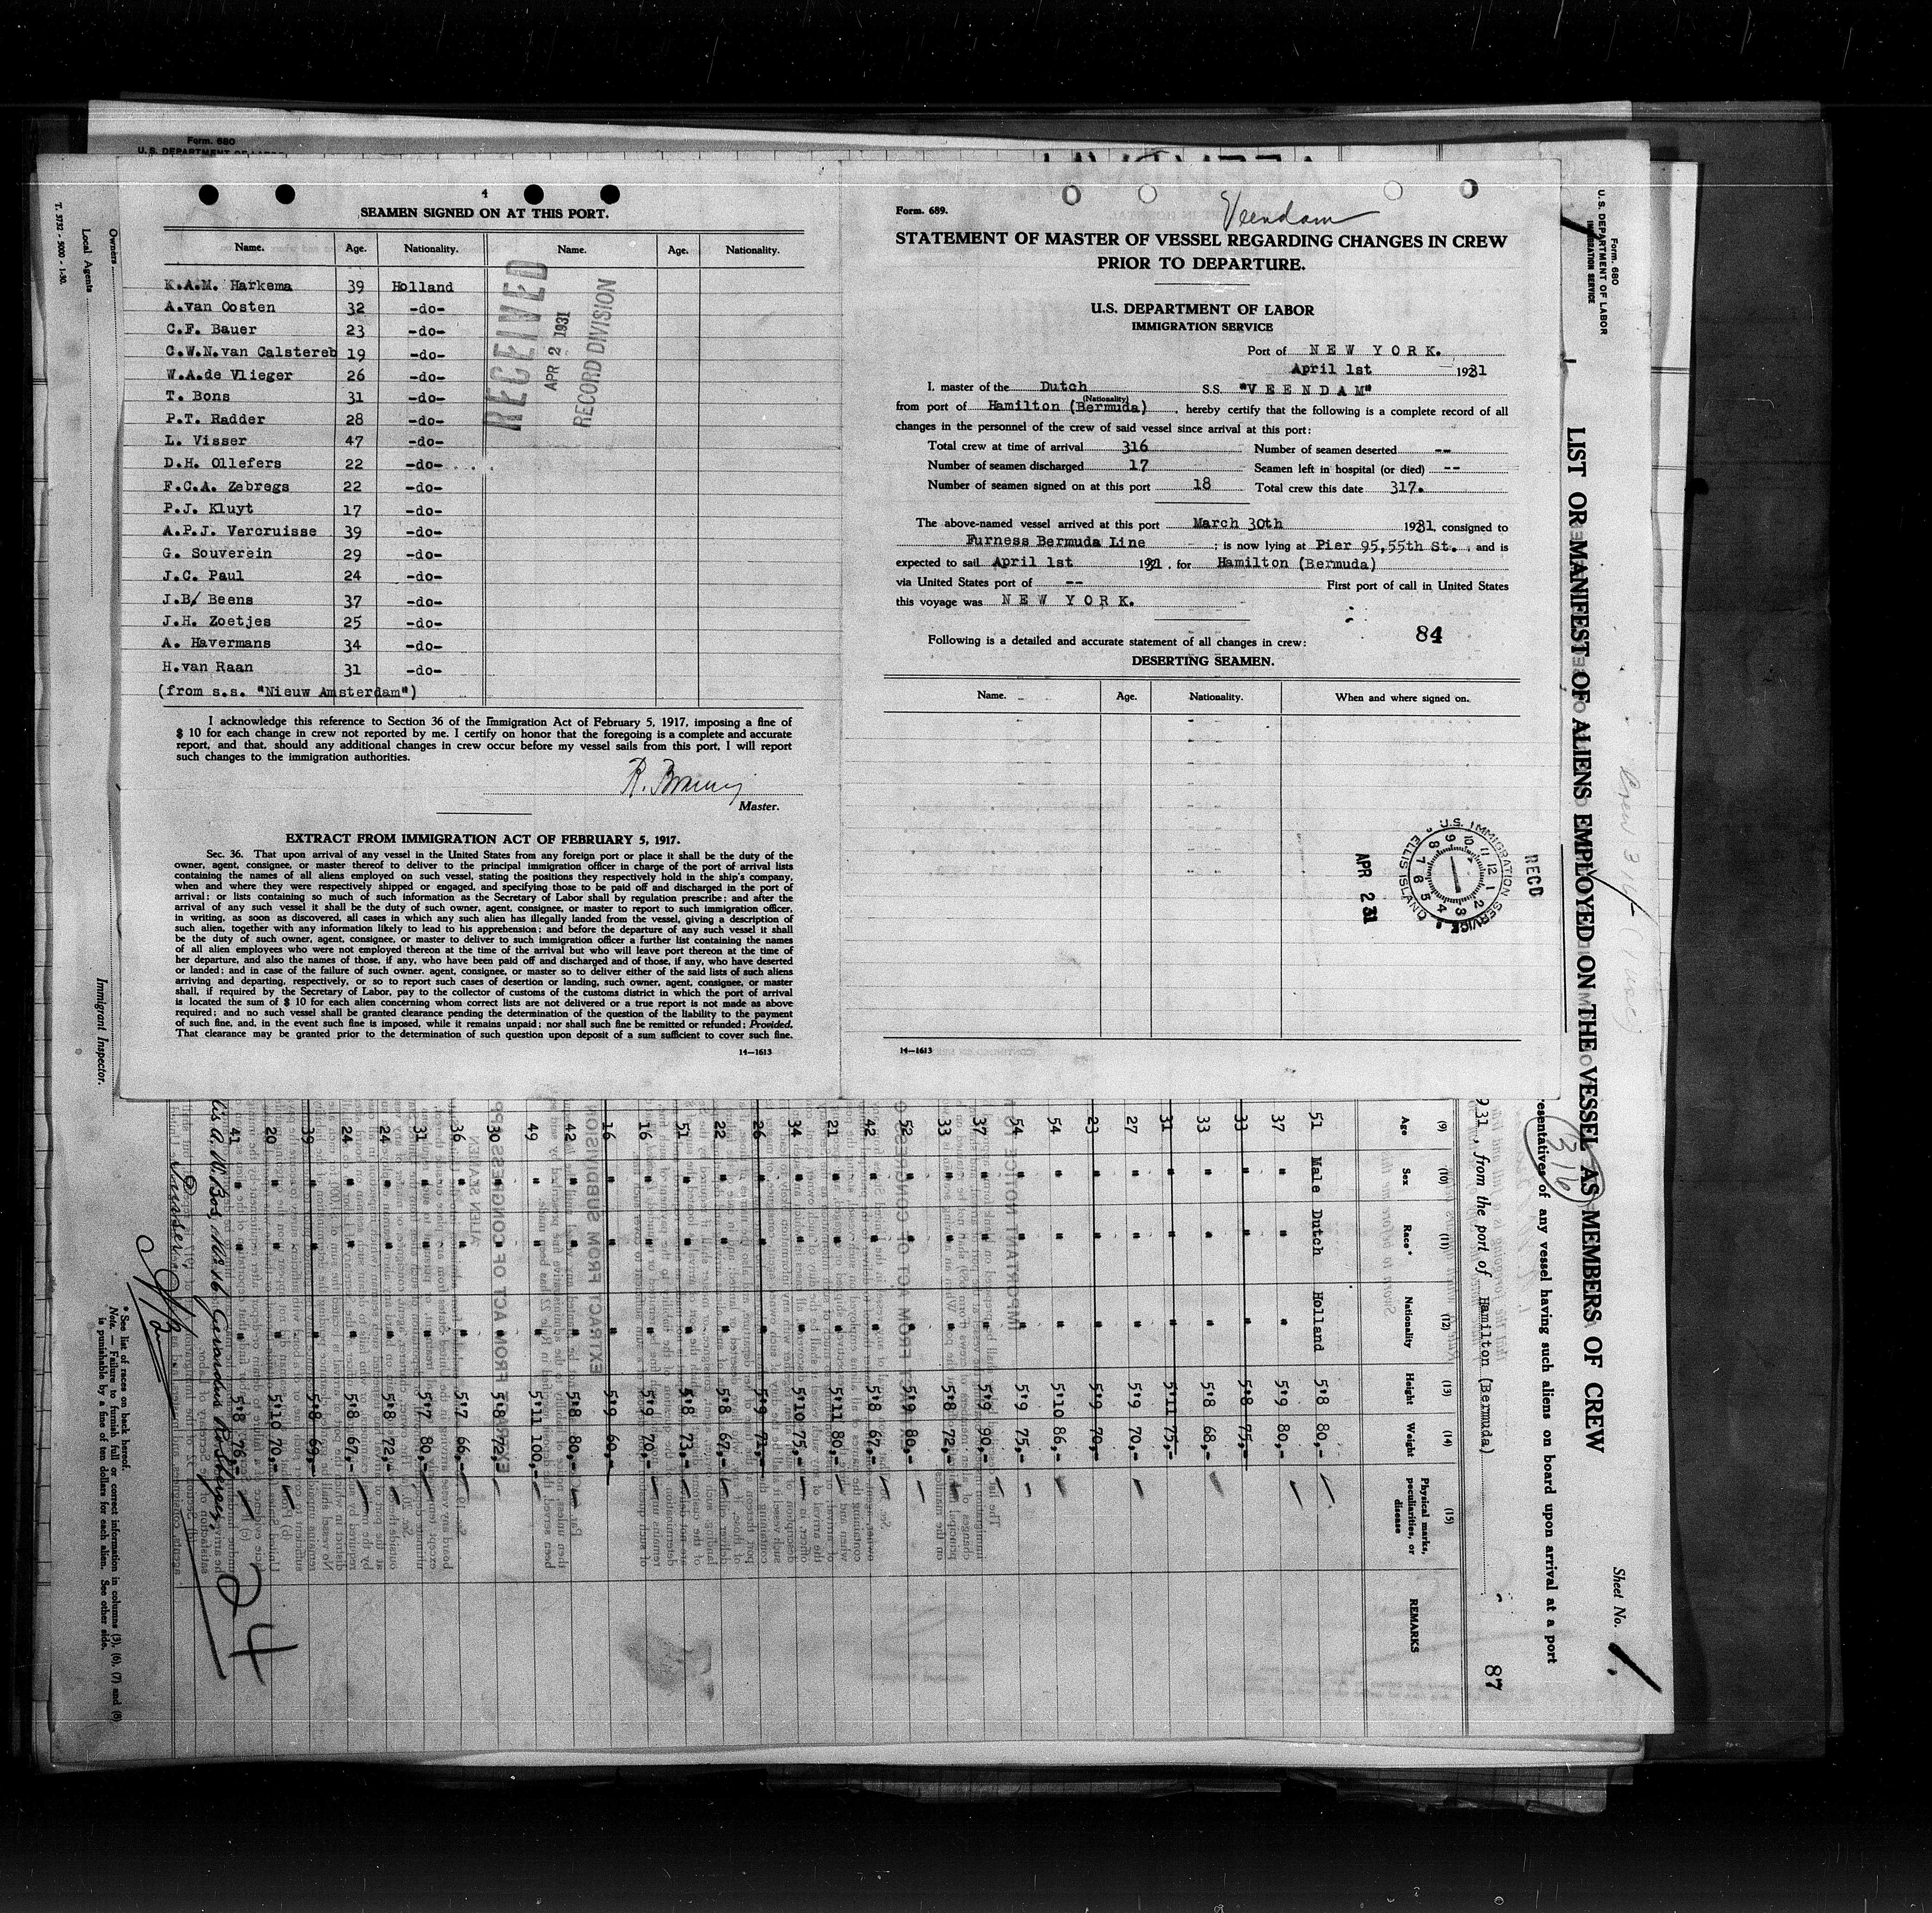 Form. 680
4
SEAMEN SIGNED ON AT THIS PORT.
Name. Age. Nationality. Name. Age. Nationality.
K.A.M. Harkema 39 Holland
A.van Oosten 32 -do-
C.F. Bauer 23 -do-
C.W.N.van Calstereb 19 -do-
W.A.de Vlieger 26 -do-
T. Bons 31 -do-
P.T. Radder 28 -do-
L. Visser 47 -do-
D.H. Ollefers 22 -do-
F.C.A. Zebregs 22 -do-
P.J. Kluyt 17 -do-
A.P.J. Vercruisse 39 -do-
G. Souverein 29 -do-
J.C. Paul 24 -do-
J.B/ Beens 37 -do-
J.H. Zoetjes 25 -do-
A. Havermans 34 -do-
H.van Raan 31 -do-
(from s.s. "Nieuw Amsterdam")
RECEIVED
APR 2 1931
RECORD DIVISION
I acknowledge this reference to Section 36 of the Immigration Act of February 5, 1917, imposing a fine of
$ 10 for each change in crew not reported by me. I certify on honor that the foregoing is a complete and accurate
report, and that, should any additional changes in crew occur before my vessel sails from this port, I will report
such changes to the immigration authorities.
Master.
EXTRACT FROM IMMIGRATION ACT OF FEBRUARY 5, 1917.
Sec. 36. That upon arrival of any vessel in the United States from any foreign port or place it shall be the duty of the
owner, agent, consignee, or master thereof to deliver to the principal immigration officer in charge of the port of arrival lists
containing the names of all aliens employed on such vessel, stating the positions they respectively hold in the ship's company,
when and where they were respectively shipped or engaged, and specifying those to be paid off and discharged in the port of
arrival; or lists containing so much of such information as the Secretary of Labor shall by regulation prescribe; and after the
arrival of any such vessel it shall be the duty of such owner, agent, consignee, or master to report to such immigration officer,
in writing, as soon as discovered, all cases in which any such alien has illegally landed from the vessel, giving a description of
such alien, together with any information likely to lead to his apprehension; and before the departure of any such vessel it shall
be the duty of such owner, agent, consignee, or master to deliver to such immigration officer a further list containing the names
of all alien employees who were not employed thereon at the time of the arrival but who will leave port thereon at the time of
her departure, and also the names of those, if any, who have been paid off and discharged and of those, if any, who have deserted
or landed; and in case of the failure of such owner. agent, consignee, or master so to deliver either of the said lists of such aliens
arriving and departing, respectively, or so to report such cases of desertion or landing, such owner, agent, consignee, or master
shall, if required by the Secretary of Labor, pay to the collector of customs of the customs district in which the port of arrival
is located the sum of $ 10 for each alien concerning whom correct lists are not delivered or a true report is not made as above
required; and no such vessel shall be granted clearance pending the determination of the question of the liability to the payment
of such fine, and, in the event such fine is imposed, while it remains unpaid; nor shall such fine be remitted or refunded; Provided,
That clearance may be granted prior to the determination of such question upon deposit of a sum sufficient to cover such fine.
14—1613
Form. 689.
Veendam
STATEMENT OF MASTER OF VESSEL REGARDING CHANGES IN CREW
PRIOR TO DEPARTURE.
U.S. DEPARTMENT OF LABOR
IMMIGRATION SERVICE
Port of NEW YORK.
April 1st 1931
I. master of the Dutch S.S. "VEENDAM"
(Nationality)
from port of Hamilton (Bermuda) , hereby certify that the following is a complete record of all
changes in the personnel of the crew of said vessel since arrival at this port:
Total crew at time of arrival 316 Number of seamen deserted --
Number of seamen discharged 17 Seamen left in hospital (or died) --
Number of seamen signed on at this port 18 Total crew this date 317.
The above-named vessel arrived at this port March 30th 1931, consigned to
Furness Bermuda Line ; is now lying at Pier 95,55th St. , and is
expected to sail April 1st 1931 , for Hamilton (Bermuda)
via United States port of -- First port of call in United States
this voyage was NEW YORK.
84
Following is a detailed and accurate statement of all changes in crew:
DESERTING SEAMEN.
Name. Age. Nationality. When and where signed on.
APR 2 31
U.S. IMMIGRATION SERVICE
ELLIS ISLAND
RECD
14—1613
Form. 680
U.S. DEPARTMENT OF LABOR
IMMIGRATION SERVICE
LIST OR MANIFEST OF ALIENS EMPLOYED ON THE VESSEL AS MEMBERS OF CREW
Sheet No. 1
316
resentatives of any vessel having such aliens on board upon arrival at a port
931, from the port of Hamilton (Bermuda)
87
(9) (10) (11) (12) (13) (14) (15)
Age Sex Race* Nationality Height Weight Physical marks, peculiarities, or disease REMARKS
51 Male Dutch Holland 5'8 80,-
37 " " " 5'9 80,-
33 " " " 5'8 75,-
33 " " " 5'8 68,-
31 " " " 5'11 75,-
27 " " " 5'9 70,-
23 " " " 5'9 70,-
54 " " " 5'10 86,-
54 " " " 5'9 75,-
37 " " " 5'9 90,-
33 " " " 5'8 72,-
52 " " " 5'9 80,-
42 " " " 5'8 67,-
21 " " " 5'11 80,-
34 " " " 5'10 75,-
26 " " " 5'9 71,-
22 " " " 5'8 67,-
51 " " " 5'8 73,-
16 " " " 5'9 70,-
16 " " " 5'9 60,-
42 " " " 5'8 80,-
49 " " " 5'11 100,-
30 " " " 5'8 72,-
36 " " " 5'7 66,-
31 " " " 5'7 80,-
24 " " " 5'8 72,-
24 " " " 5'8 67,-
39 " " " 5'8 69,-
20 " " " 5'10 70,-
41 " " " 5'8 76,-
24
* See list of races on back hereof.
Note. — Failure to furnish full or correct information in columns (3), (6), (7) and (8)
is punishable by a fine of ten dollars for each alien. See other side.
Immigrant Inspector.
Owners
Local Agents
T. 3732 - 5000 - 1-30.